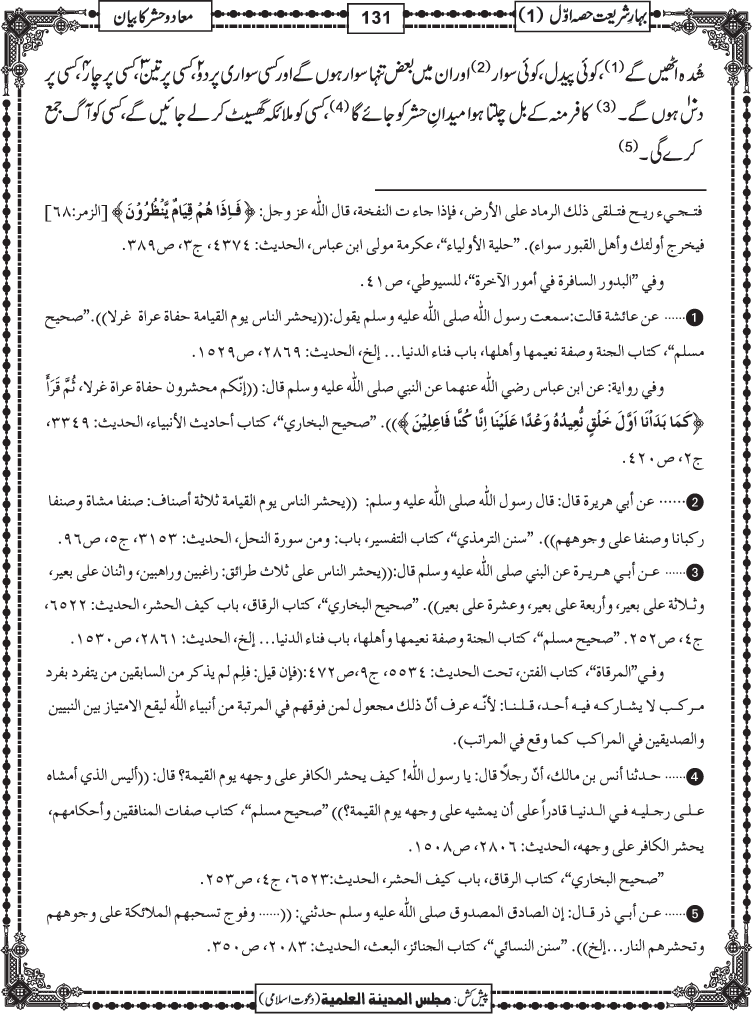 بہارِ شریعت حصہ اوّل (1)
131
معاد و حشر کا بیان
شُدہ اٹھیں گے (1)، کوئی پیدل، کوئی سوار (2) اور ان میں بعض تنہا سوار ہوں گے اور کسی سواری پر دو، کسی پر تین، کسی پر چار، کسی پر
دس ہوں گے۔ (3) کافر منہ کے بل چلتا ہوا میدانِ حشر کو جائے گا (4)، کسی کو ملائکہ گھسیٹ کر لے جائیں گے، کسی کو آگ جمع
کرے گی۔ (5)
فتجيء ريح فتلقى ذلك الرماد على الأرض، فإذا جاء ت النفخة، قال اللّٰه عز وجل: ﴿ فَاِذَا هُمْ قِيَامٌ يَّنْظُرُوْنَ ﴾ [الزمر: ٦٨]
فيخرج أولئك وأهل القبور سواء). ”حلية الأولياء“، عكرمة مولى ابن عباس، الحديث: ٤٣٧٤، ج٣، ص٣٨٩.
وفي ”البدور السافرة في أمور الآخرة“، للسيوطي، ص٤١.
1 ...... عن عائشة قالت: سمعت رسول اللّٰه صلى اللّٰه عليه وسلم يقول: ((يحشر الناس يوم القيامة حفاة عراة غرلا)). ”صحيح
مسلم“، كتاب الجنة وصفة نعيمها وأهلها، باب فناء الدنيا... إلخ، الحديث: ٢٨٦٩، ص١٥٢٩.
وفي رواية: عن ابن عباس رضي اللّٰه عنهما عن النبي صلى اللّٰه عليه وسلم قال: ((إنّكم محشرون حفاة عراة غرلا، ثُمَّ قَرَأَ
﴿كَمَا بَدَاْنَا اَوَّلَ خَلْقٍ نُّعِيدُهُ وَعْدًا عَلَيْنَا اِنَّا كُنَّا فَاعِلِيْنَ﴾)). ”صحيح البخاري“، كتاب أحاديث الأنبياء، الحديث: ٣٣٤٩،
ج٢، ص٤٢٠.
2 ...... عن أبي هريرة قال: قال رسول اللّٰه صلى اللّٰه عليه وسلم: ((يحشر الناس يوم القيامة ثلاثة أصناف: صنفا مشاة وصنفا
ركبانا وصنفا على وجوههم)). ”سنن الترمذي“، كتاب التفسير، باب: ومن سورة النحل، الحديث: ٣١٥٣، ج٥، ص٩٦.
3 ...... عن أبي هريرة عن البني صلى اللّٰه عليه وسلم قال: ((يحشر الناس على ثلاث طرائق: راغبين وراهبين، واثنان على بعير،
وثلاثة على بعير، وأربعة على بعير، وعشرة على بعير)). ”صحيح البخاري“، كتاب الرقاق، باب كيف الحشر، الحديث: ٦٥٢٢،
ج٤، ص٢٥٢. ”صحيح مسلم“، كتاب الجنة وصفة نعيمها وأهلها، باب فناء الدنيا... إلخ، الحديث: ٢٨٦١، ص١٥٣٠.
وفي ”المرقاة“، كتاب الفتن، تحت الحديث: ٥٥٣٤، ج٩، ص٤٧٢: (فإن قيل: فلِم لم يذكر من السابقين من يتفرد بفرد
مركب لا يشاركه فيه أحد، قلنا: لأنّه عرف أنّ ذلك مجعول لمن فوقهم في المرتبة من أنبياء اللّٰه ليقع الامتياز بين النبيين
والصديقين في المراكب كما وقع في المراتب).
4 ...... حدثنا أنس بن مالك، أنّ رجلًا قال: يا رسول اللّٰه! كيف يحشر الكافر على وجهه يوم القيمة؟ قال: ((أليس الذي أمشاه
على رجليه في الدنيا قادراً على أن يمشيه على وجهه يوم القيمة؟)) ”صحيح مسلم“، كتاب صفات المنافقين وأحكامهم،
يحشر الكافر على وجهه، الحديث: ٢٨٠٦، ص١٥٠٨.
”صحيح البخاري“، كتاب الرقاق، باب كيف الحشر، الحديث: ٦٥٢٣، ج٤، ص٢٥٣.
5 ...... عن أبي ذر قال: إن الصادق المصدوق صلى اللّٰه عليه وسلم حدثني: ((...... وفوج تسحبهم الملائكة على وجوههم
وتحشرهم النار...إلخ)). ”سنن النسائي“، كتاب الجنائز، البعث، الحديث: ٢٠٨٣، ص٣٥٠.
پیش کش: مجلس المدينة العلمية (دعوت اسلامی)